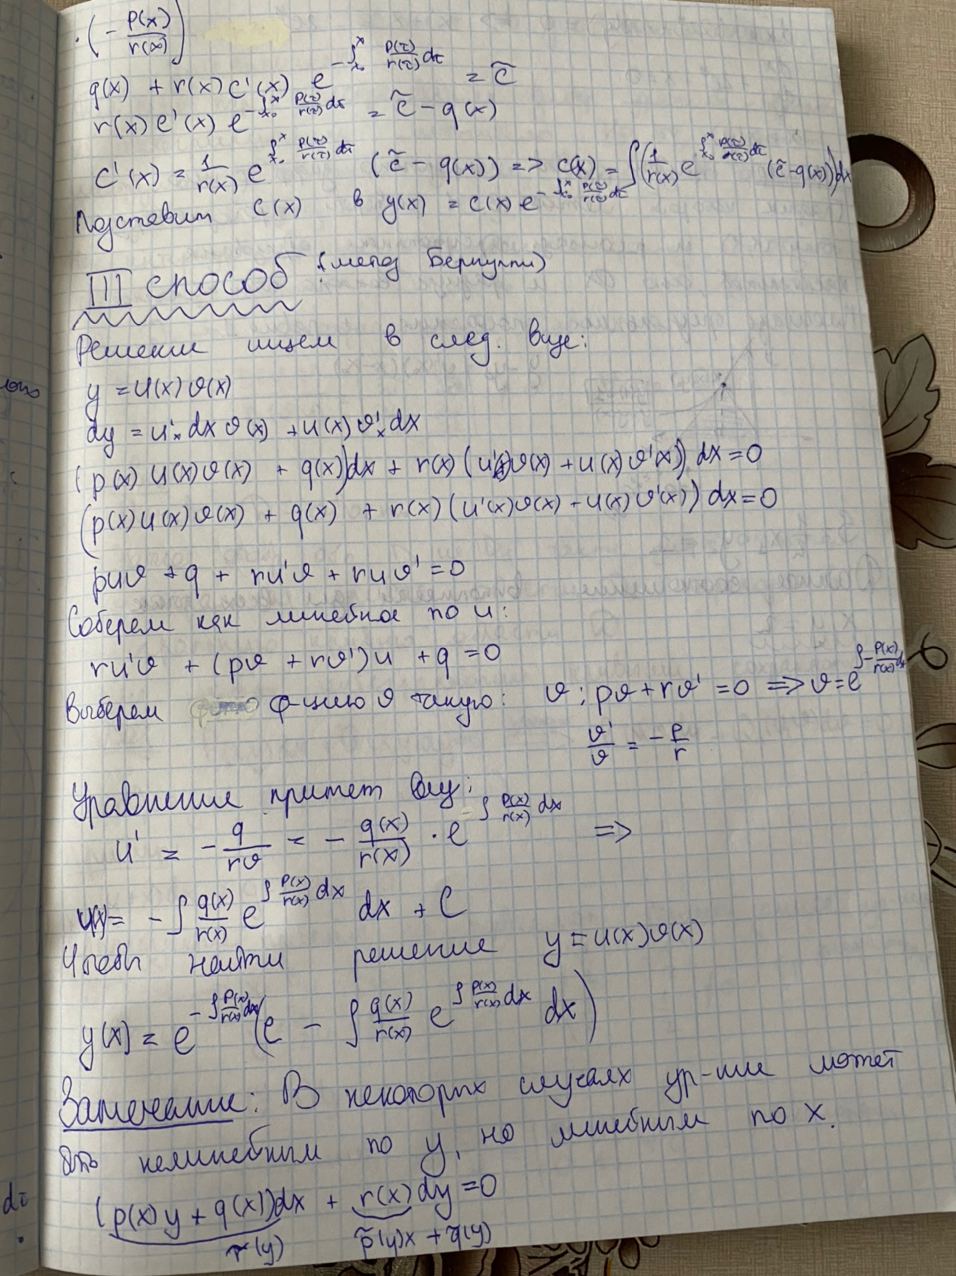 · (- p(x)/r(x))
q(x) + r(x) c'(x) e^{-∫_{x₀}^{x} p(τ)/r(τ) dτ} = c̃
r(x) c'(x) e^{-∫_{x₀}^{x} p(τ)/r(τ) dτ} = c̃ - q(x)
c'(x) = 1/r(x) e^{∫_{x₀}^{x} p(τ)/r(τ) dτ} (c̃ - q(x)) => c(x) = ∫(1/r(x) e^{∫_{x₀}^{x} p(τ)/r(τ) dτ} (c̃ - q(x)))dx
Подставим c(x) в y(x) = c(x) e^{-∫_{x₀}^{x} p(τ)/r(τ) dτ}
III способ: (метод Бернулли)
Решение ищем в след. виде:
y = u(x) v(x)
dy = u'ₓ dx v(x) + u(x) v'ₓ dx
(p(x) u(x) v(x) + q(x))dx + r(x) (u'(x) v(x) + u(x) v'(x)) dx = 0
(p(x) u(x) v(x) + q(x) + r(x) (u'(x) v(x) + u(x) v'(x)) dx = 0
puv + q + ru'v + ruv' = 0
Соберем как линейное по u:
ru'v + (pv + rv')u + q = 0
Выберем ф-цию v такую: v: pv + rv' = 0 => v = e^{∫ -p(x)/r(x) dx}
v'/v = - p/r
Уравнение примет вид:
u' = - q/(rv) = - q(x)/r(x) · e^{∫ p(x)/r(x) dx} =>
u(x) = - ∫ q(x)/r(x) e^{∫ p(x)/r(x) dx} dx + C
Чтобы найти решение y = u(x) v(x)
y(x) = e^{-∫ p(x)/r(x) dx} (c - ∫ q(x)/r(x) e^{∫ p(x)/r(x) dx} dx)
Замечание: В некоторых случаях ур-ние может
быть нелинейным по y, но линейным по x.
(p(x) y + q(x))dx + r(x) dy = 0
r̃(y) p̃(y)x + q̃(y)